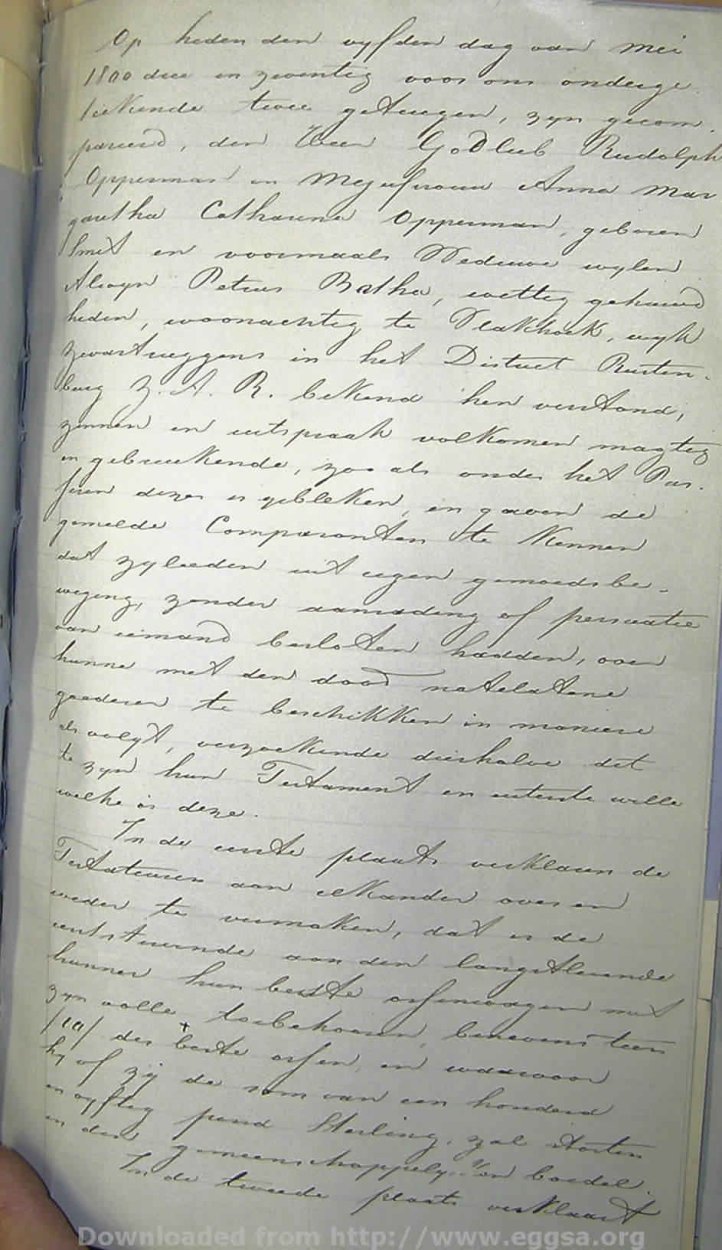 Op heden den vyfden dag van Mei
1800 drie en zeventig voor ons onderge-
teekende twee getuigen, zyn gecom-
pareerd, den Heer Godlieb Rudolph
Opperman en Mejufvrouw Anna Mar
garetha Catharina Opperman, geboren
Smit en voormaals Weduwe wylen
Alwyn Petrus Botha, wettig gehuwd
heden, woonachtig te Vlakhoek, wyk
Zwartruggens in het District Rusten-
burg Z. A. R. bekend hun verstand,
zinnen en uitspraak volkomen magtig
en gebruikende, zoo als onder het Pas-
seren dezer is gebleken, en gaven de
gemelde Comparanten te Kennen
dat zylieden uit eigen gemoedsbe-
weging, zonder aanrading of persuatie
van iemand besloten hadden, over
hunne met den dood natelatene
goederen te beschikken in maniere
als volgt, verzoekende dierhalve dit
te zyn hun Testament en uiterste wille
welke is deze.
In de eerste plaats verklaren de
Testateuren aan elkander over en
weder te vermaken, dat is de
eerststervende aan den langstlevende
hunner hun beste ossenwagen met
zyn volle toebehooren, benevens tien
/10/ der beste ossen, en waarvoor
hy of zij de som van een honderd
en vyftig pond Sterling, zal storten
in den gemeenschappelyken boedel.
In de tweede plaats verklaart
Downloaded from http://www.eggsa.org